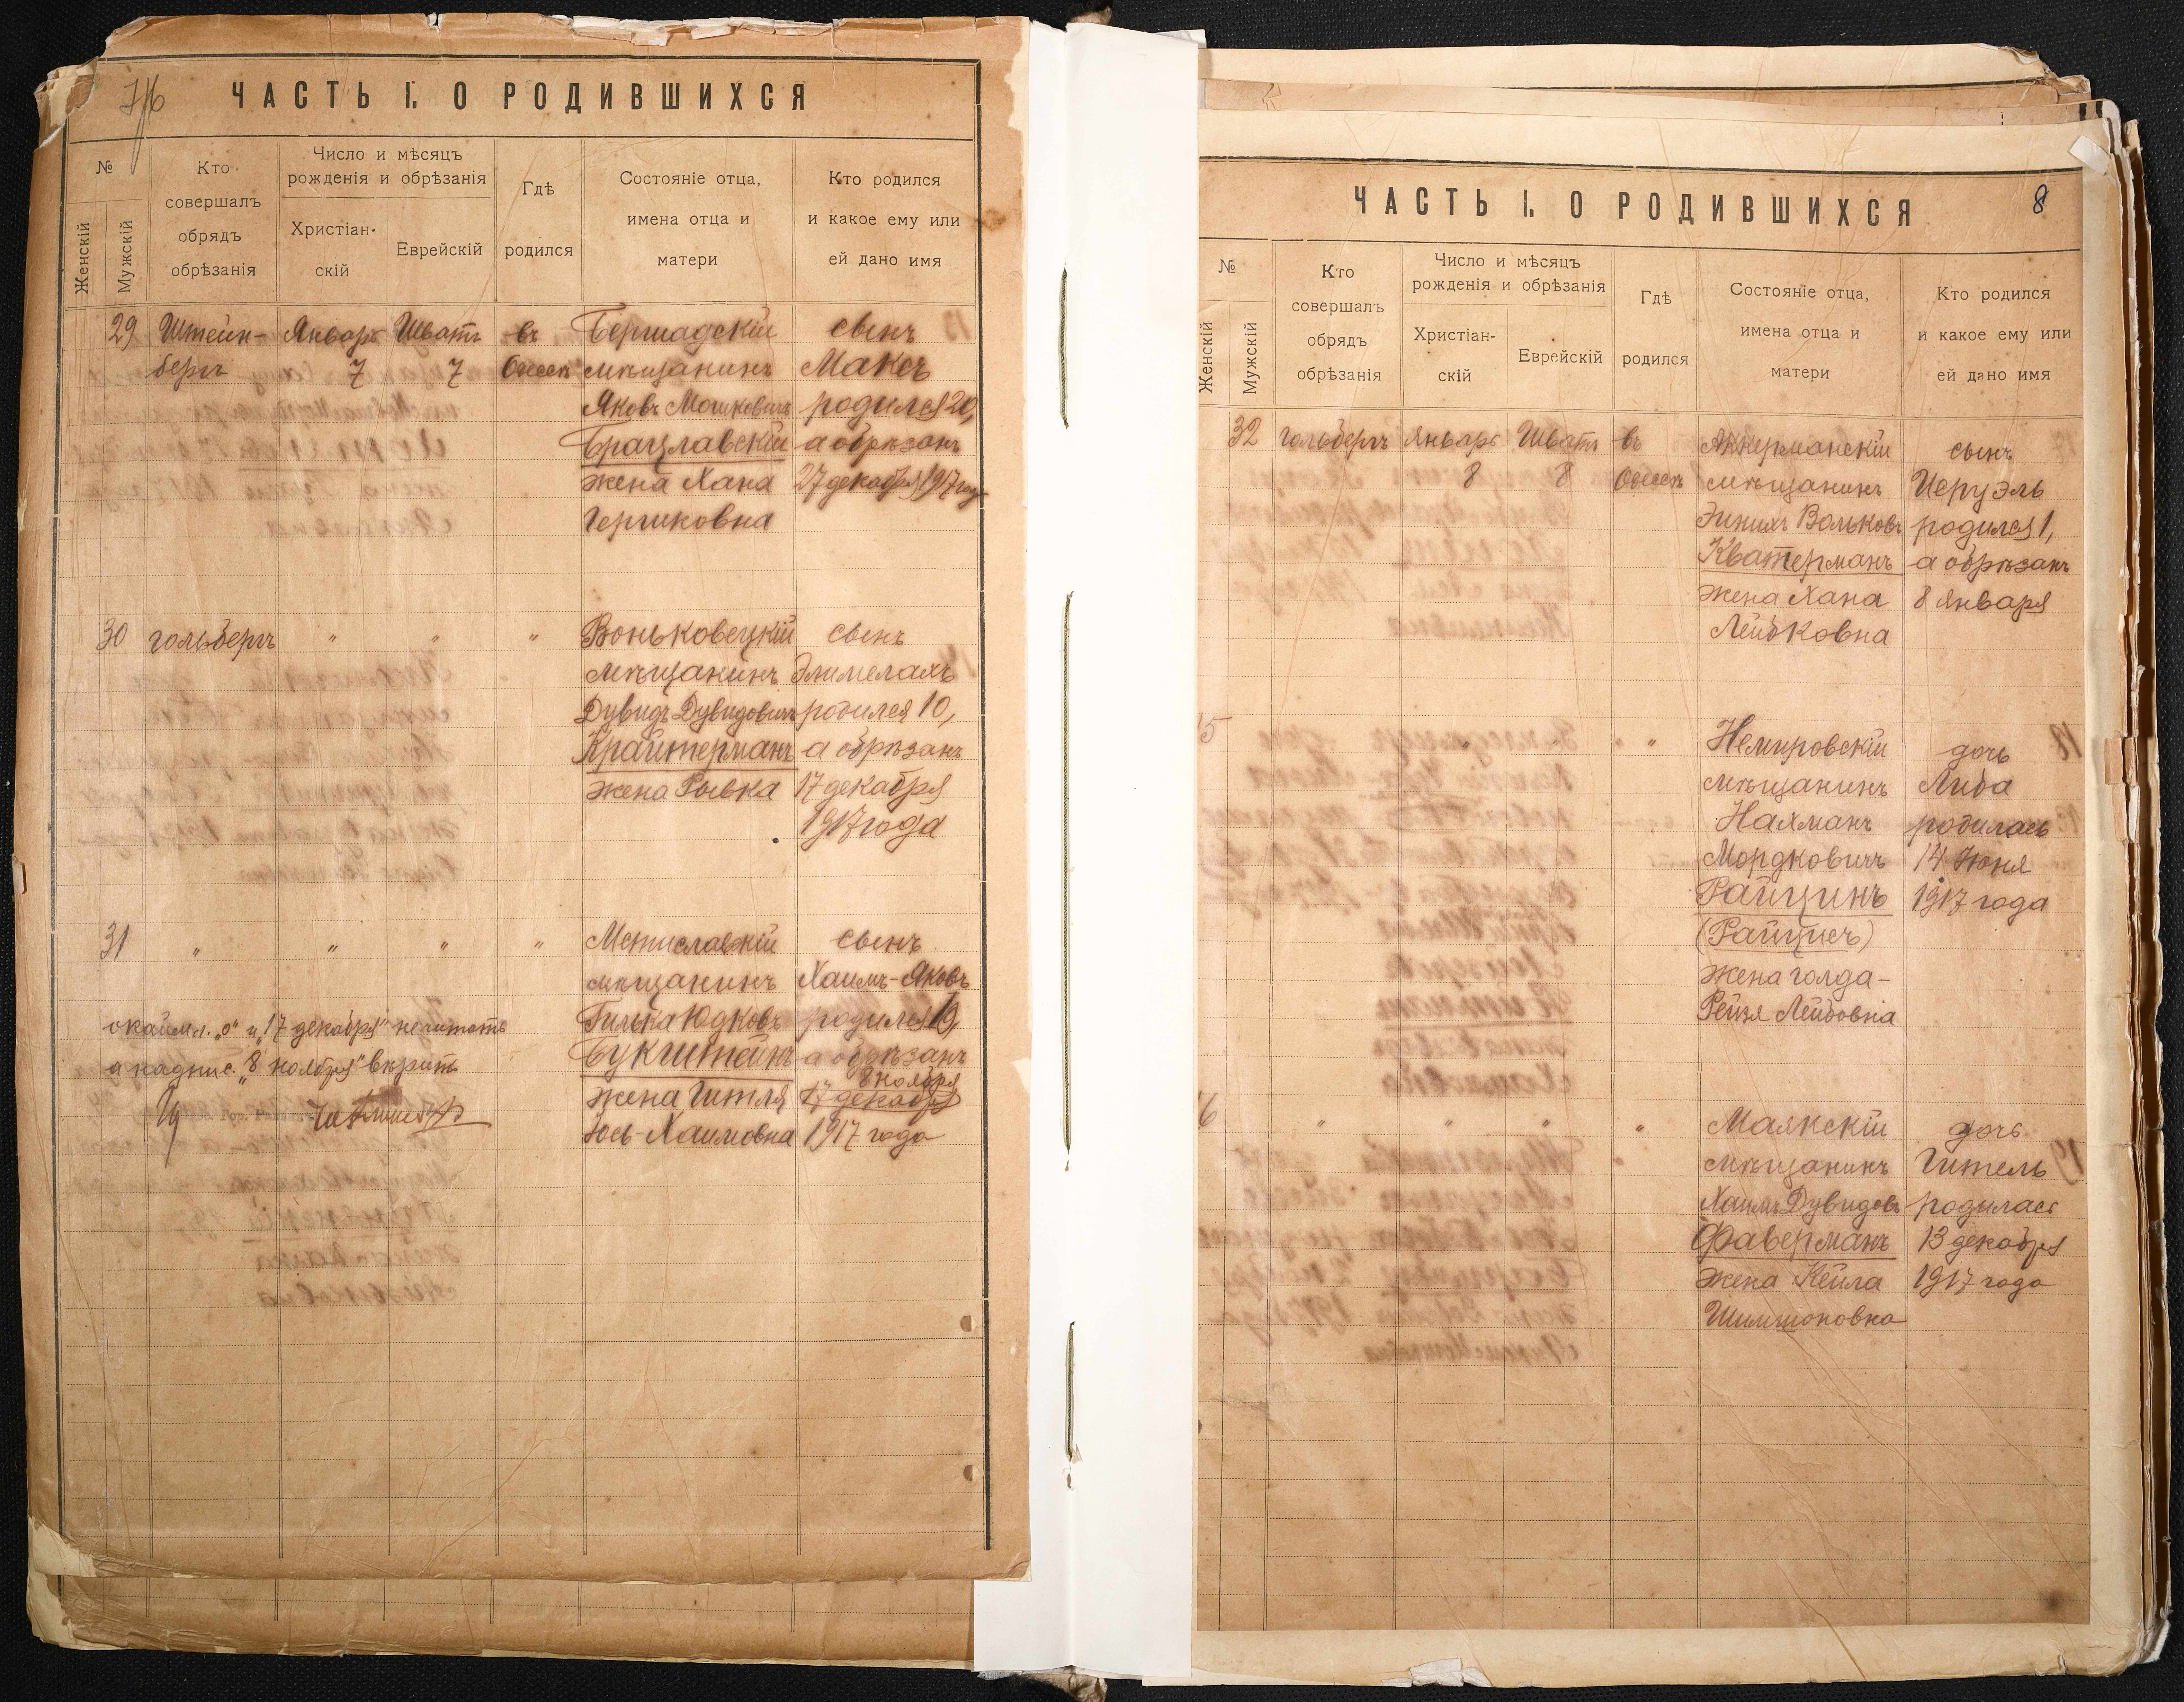 7/6
ЧАСТЬ I. О РОДИВШИХСЯ
№
Женскій
Мужскій
Кто
совершалъ
обрядъ
обрѣзанія
Число и мѣсяцъ
рожденія и обрѣзанія
Христіан-
скій
Еврейскій
Гдѣ
родился
Состояніе отца,
имена отца и
матери
Кто родился
и какое ему или
ей дано имя
29 Штейн- Январь Шватъ въ Бершадскій сынъ
бергъ 7 7 Одессѣ мѣщанинъ Максъ
Яковъ Мошковичъ родился 20,
Брацлавскій а обрѣзанъ
жена Хана 27 декабря 1917 год
Гершковна
30 гольбергъ " " " Воньковецкій сынъ
мѣщанинъ Элимелахъ
Дувидъ Дувидовичъ родился 10,
Крайтерманъ а обрѣзанъ
жена Рывка 17 декабря
1917 года
31 " " " " Мстиславскій сынъ
мѣщанинъ Хаимъ-Яковъ
окаймл. „0" и „17 декабря" не читать Гилька Юдковъ родился 1,
Букштейнъ а обрѣзанъ
а надпис. „8 ноября" вѣрить 8 ноября
жена Гитля 17 декабря
Юсь-Хаимовна 1917 года
8
ЧАСТЬ I. О РОДИВШИХСЯ
№
Женскій
Мужскій
Кто
совершалъ
обрядъ
обрѣзанія
Число и мѣсяцъ
рожденія и обрѣзанія
Христіан-
скій
Еврейскій
Гдѣ
родился
Состояніе отца,
имена отца и
матери
Кто родился
и какое ему или
ей дано имя
32 гольбергъ Январь Шватъ въ Аккерманскій сынъ
8 8 Одессѣ мѣщанинъ Иеруэль
Эинихъ Вольковъ родился 1,
Кватерманъ а обрѣзанъ
жена Хана 8 января
Лейбковна
15 " " " " Немировскій дочь
мѣщанинъ Либа
Нахманъ родилась
Мордковичъ 14 Июня
Райцинъ 1917 года
(Райцисъ)
жена Голда-
Рейзя Лейбовна
16 " " " " Маякскій дочь
мѣщанинъ Гитель
Хаимъ Дувидовъ родилась
Фаверманъ 13 декабря
жена Кейла 1917 года
Шимшоновна